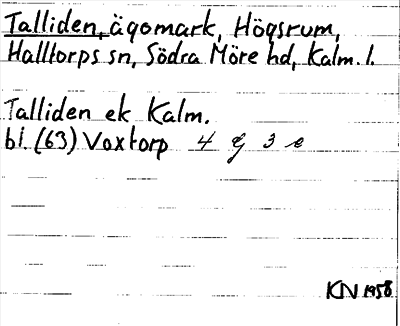 Talliden, ägomark, Högsrum,
Halltorps sn, Södra Möre hd, Kalm. l.
Talliden ek Kalm.
bl. (63) Voxtorp 4 G 3 e
KN 1958